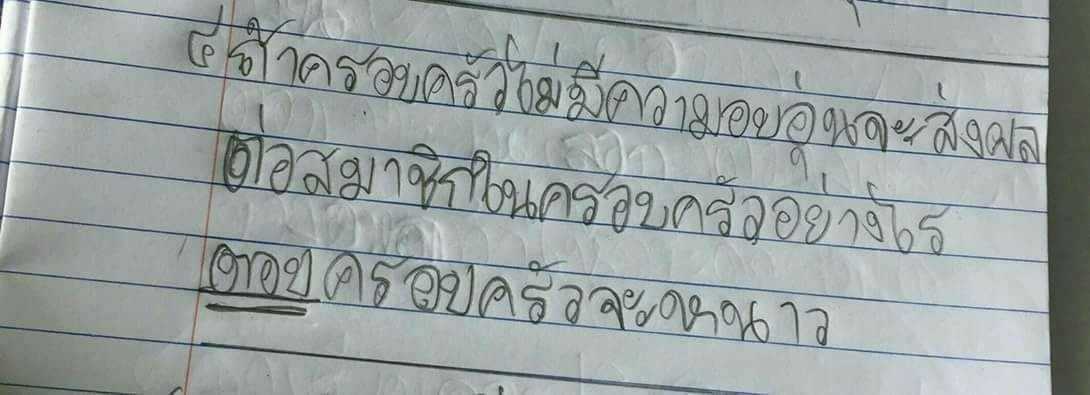 ๔ ถ้าครอบครัวไม่มีความอบอุ่นจะส่งผล
ต่อสมาชิกในครอบครัวอย่างไร
ตอบ ครอบครัวจะหนาว